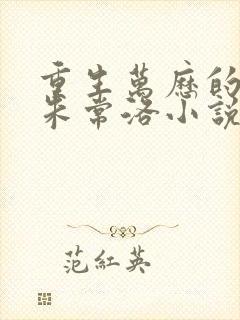 重生萬歷的
朱常洛小說
范紅英